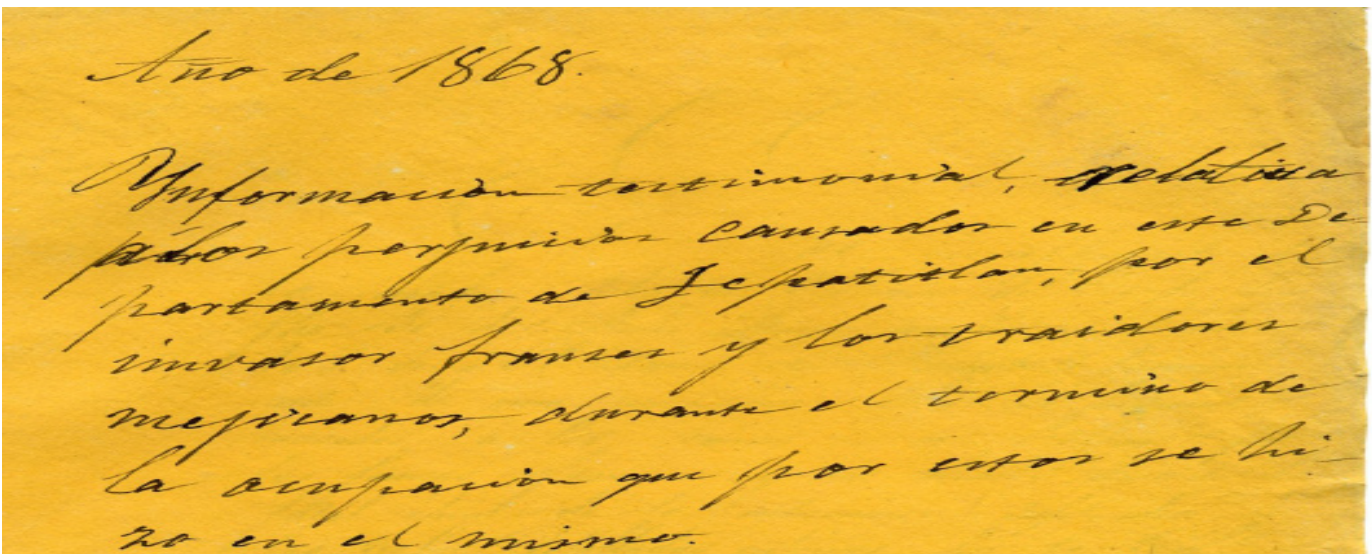 Año de 1868.
Ynformación testimonial, relativa
a los perjuicios causados en este De
partamento de Tepatitlan, por el
invasor franses y los traidores
mejicanos, durante el termino de
la ocupación que por estos se hi-
zo en el mismo.